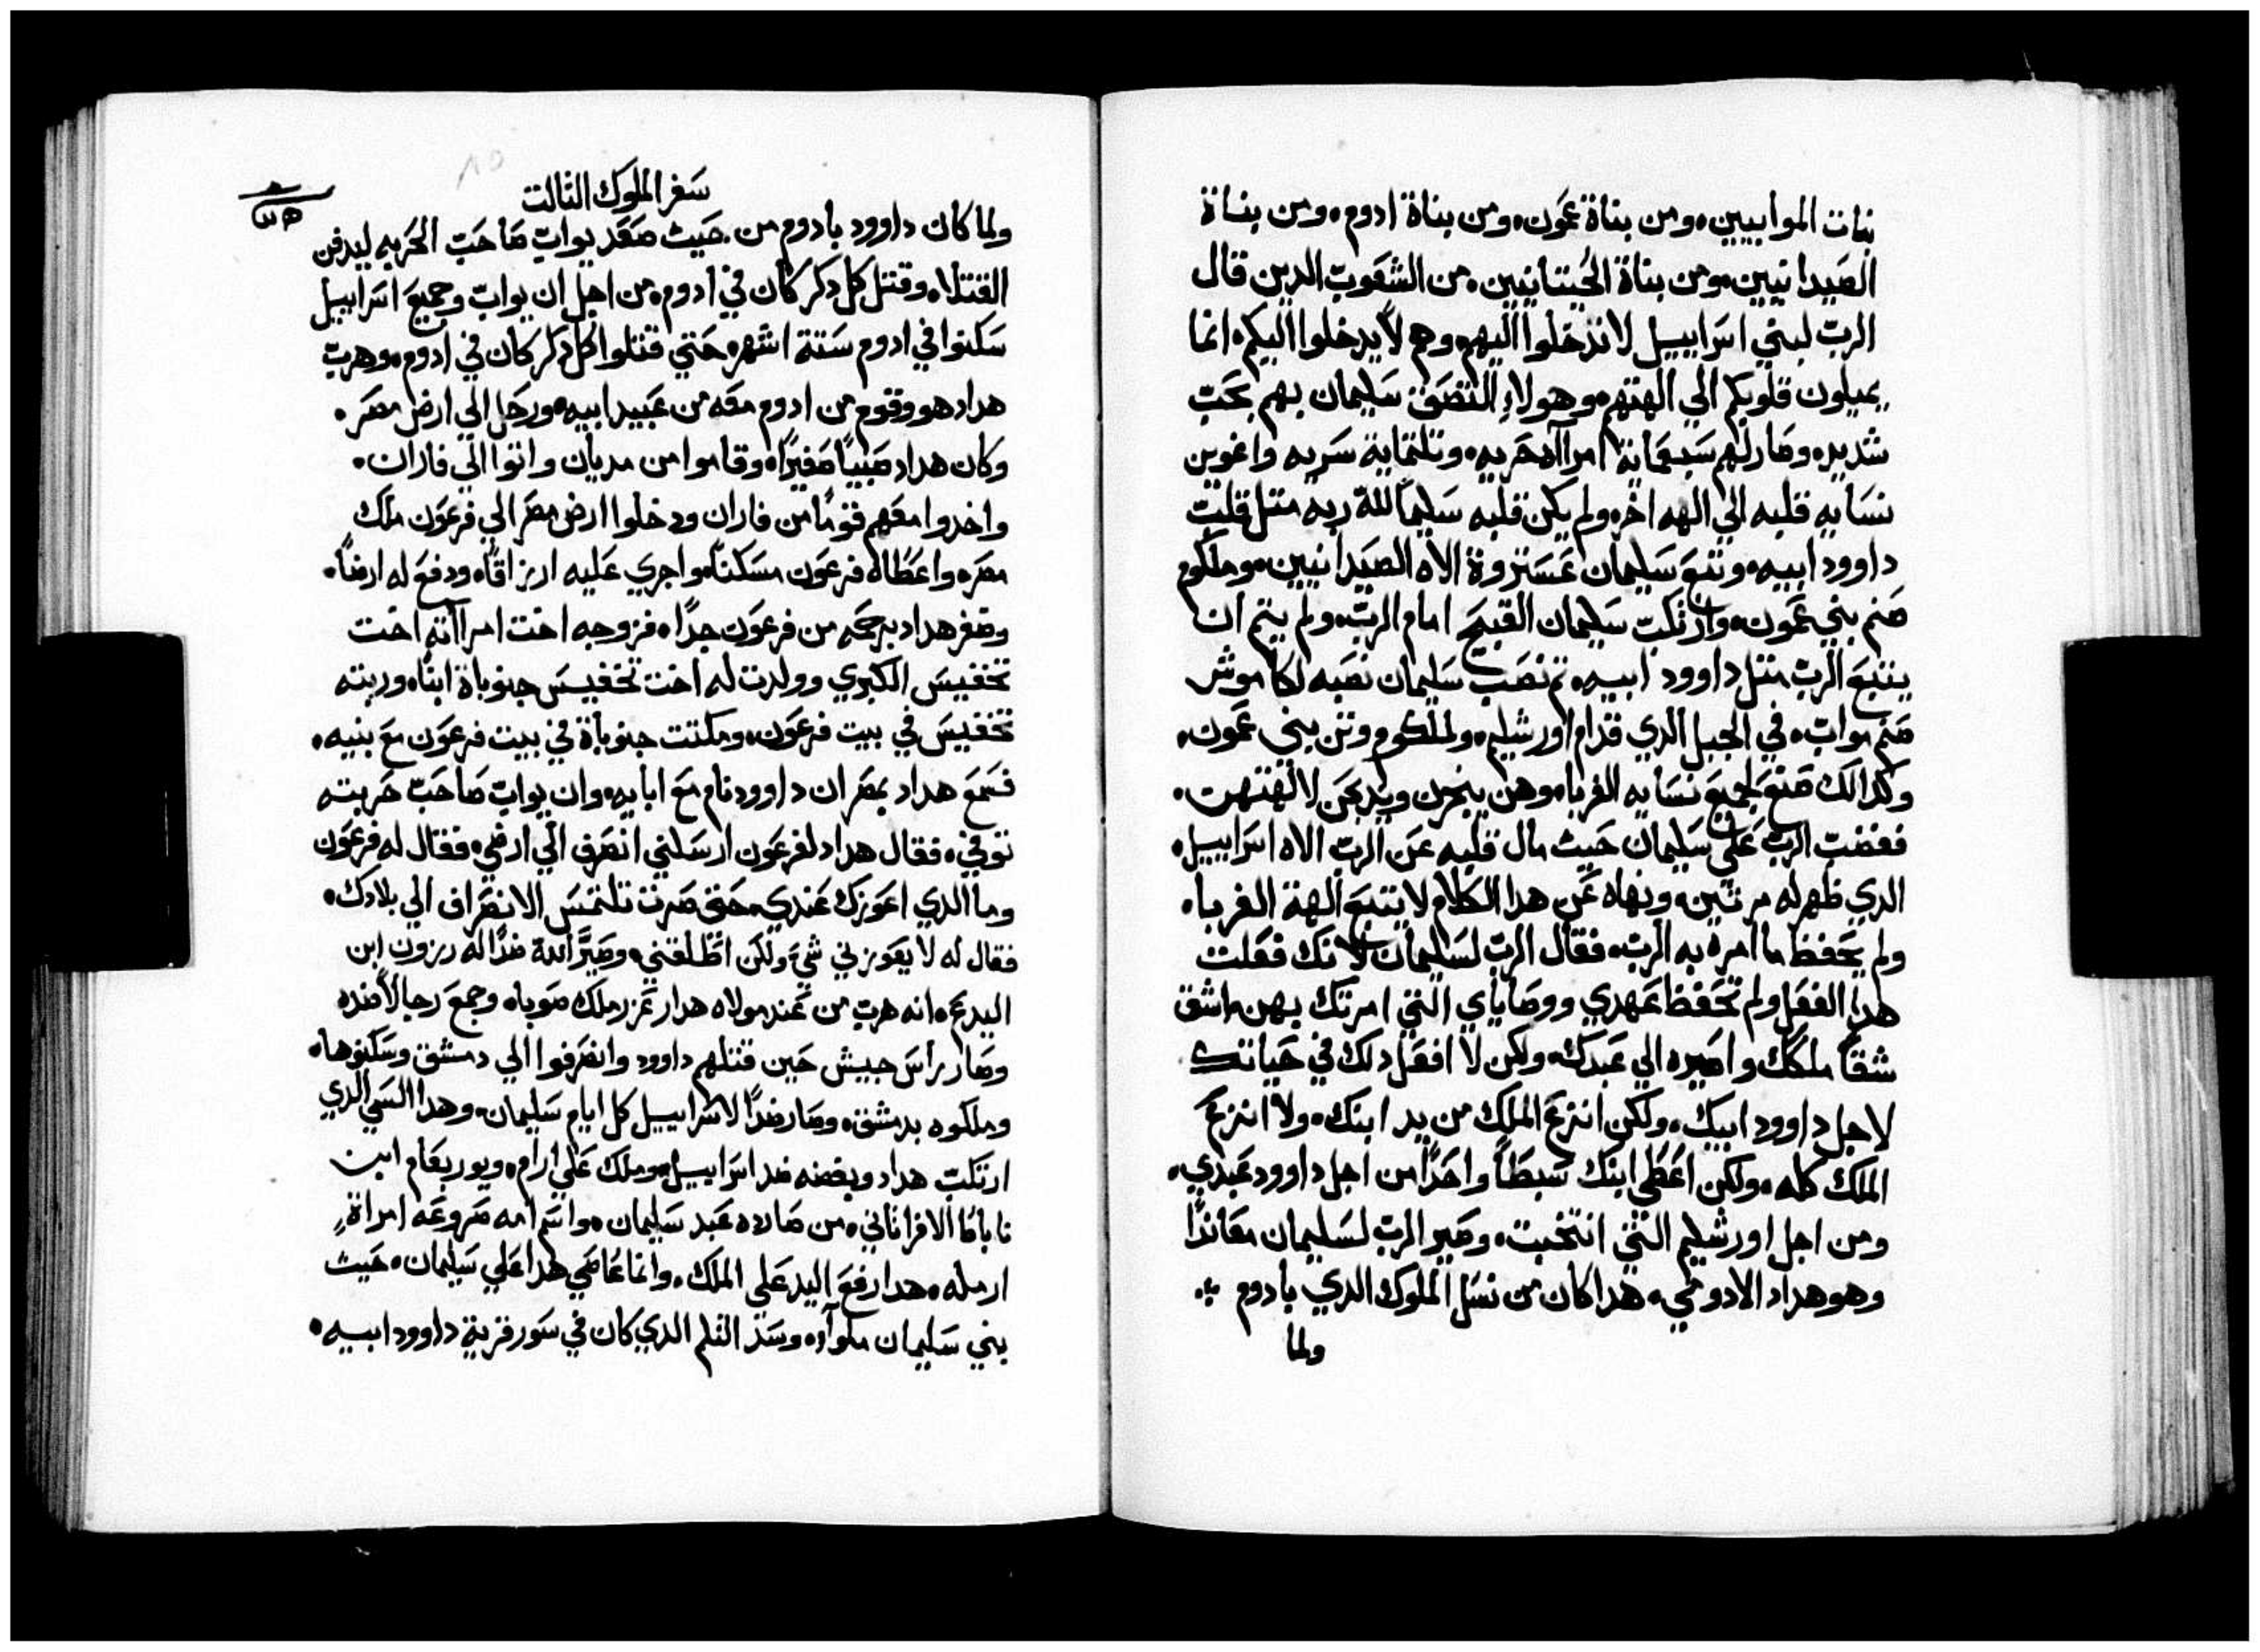 بنات الموابيين، ومن بناة عمون، ومن بناة ادوم، ومن بناة
الصيدانيين، ومن بناة الحيتانيين، من الشعوب الدين قال
الرب لبني اسراييل لا تدخلوا اليهم، وهم لا يدخلوا اليكم، انما
يميلون قلوبكم الي الهتهم، وهولاء التصق سليمان بهم بحب
شديد، وصار لهم سبعماية امراآه حريه، وتلتماية سريه واغوين
نسايه قلبه الي الهه اخر، ولم يكن قلبه سليماً للة ربه متل قلب
داوود ابيه، وتبع سليمان عستروة الاه الصيدانيين، وملكوم
صنم بني عمون، وارتكب سليمان القبيح امام الرب، ولم يتم ان
يتبع الرب متل داوود ابيه، تم نصب سليمان نصبه لكاموش
صنم مواب، في الجبل الدي قدام اورشليم، ولملكوم وتن بني عمون،
وكدالك صنع لجميع نسايه الغربا، وهن يبخرن ويدبحن لالهتهن،
فغضب الرب علي سليمان حيت مال قلبه عن الرب الاه اسراييل،
الدي ظهر له مرتين، ونهاه عن هدا الكلام لا يتبع الهة الغربا،
ولم يحفظ ما امره به الرب، فقال الرب لسليمان لانك فعلت
هدا الفعل ولم تحفظ عهدي ووصاياي التي امرتك بهن، اشق
شقاً ملكك واصيره الي عبدك، ولكن لا افعل دلك في حياتك
لاجل داوود ابيك، ولكن انزع الملك من يد ابنك، ولا انزع
الملك كله، ولكن اعطي ابنك سبطاً واحداً من اجل داوود عبدي،
ومن اجل اورشليم التي انتخبت، وصير الرب لسليمان معانداً
وهو هداد الادومي، هدا كان من نسل الملوك الدي بادوم
ولما
سفر الملوك التالت
ولما كان داوود بادوم من حيث صعد يواب صاحب الحربه ليدفن
القتلا، وقتل كل دكر كان في ادوم، من اجل ان يواب وجميع اسراييل
سكنوا في ادوم ستة اشهر، حتي قتلوا كل دكر كان في ادوم، وهرب
هداد هو وقوم من ادوم معه من عبيد ابيه، ورحل الي ارض مصر،
وكان هداد صبياً صغيراً، وقاموا من مديان واتوا الي فاران،
واخدوا معهم قوماً من فاران ودخلوا ارض مصر الي فرعون ملك
مصر، واعطاه فرعون مسكناً، واجري عليه ارزاقاً، ودفع له ارضاً،
وضفر هداد برحمه من فرعون جداً، فزوجه اخت امراآته اخت
تحفنيس الكبري وولدت له اخت تحفنيس جنوباة ابناً، وربته
تحفنيس في بيت فرعون، ومكتت جنوباة في بيت فرعون مع بنيه،
فسمع هداد بمصر ان داوود نام مع ابايه، وان يواب صاحب حربته
توفي، فقال هداد لفرعون ارسلني انصرف الي ارضي، فقال له فرعون
وما الدي اعوزك عندي، حتي صرت تلتمس الانصراف الي بلادك،
فقال له لا يعوزني شي، ولكن اطلقني، وصير اللة ضداً له رزون ابن
اليدع، انه هرب من عند مولاه هدار عزر ملك صوبا، وجمع رجالاً ضده
وصار راس جيش حين قتلهم داوود وانصرفوا الي دمشق وسكنوها،
وملكوه بدمشق، وصار ضداً لاسراييل كل ايام سليمان، وهدا الشي الدي
ارتكب هداد وبغضه ضد اسراييل، وملك علي ارام، ويوربعام ابن
ناباط الافراتاني، من صارده عبد سليمان، واسم امه صروعه امراة
ارمله، هدا رفع اليد علي الملك، وانما عاصي هدا علي سليمان، حيث
بني سليمان ملواآ، وسد التلم الدي كان في سور قرية داوود ابيه،